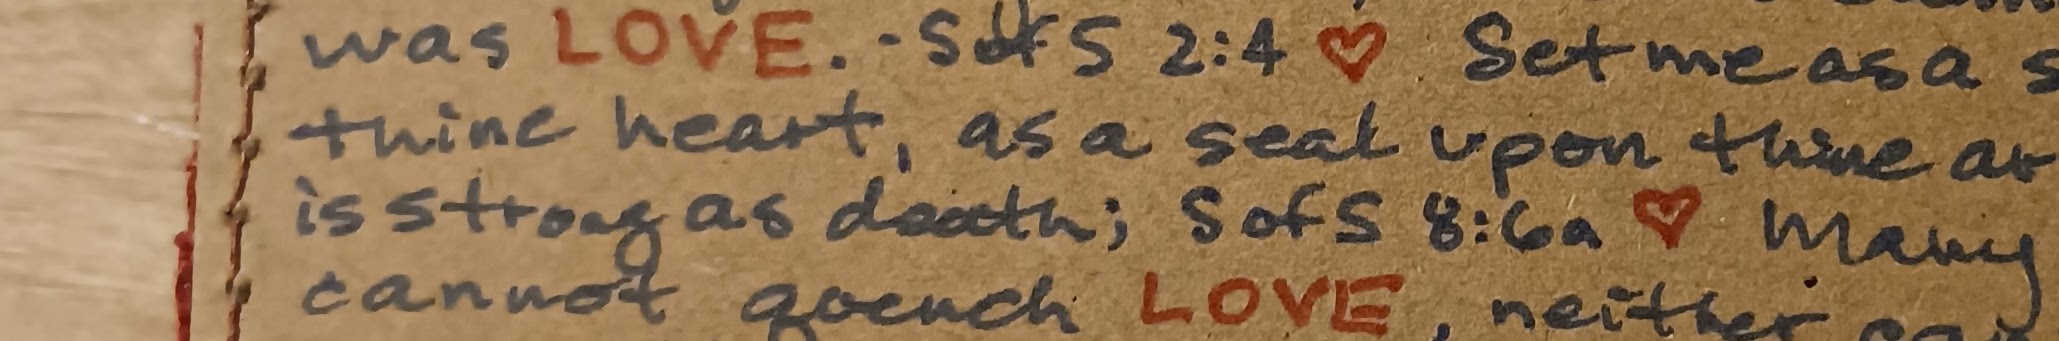 was LOVE. - S of S 2:4 ♡ Set me as a s
thine heart, as a seal upon thine ar
is strong as death; S of S 8:6a ♡ Many
cannot quench LOVE, neither can